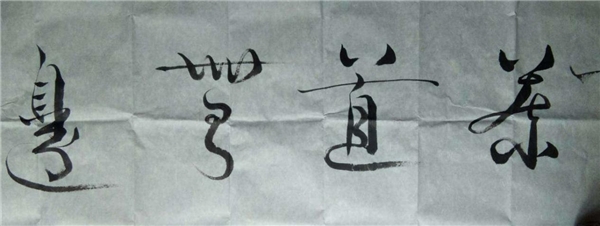 茶道無邊